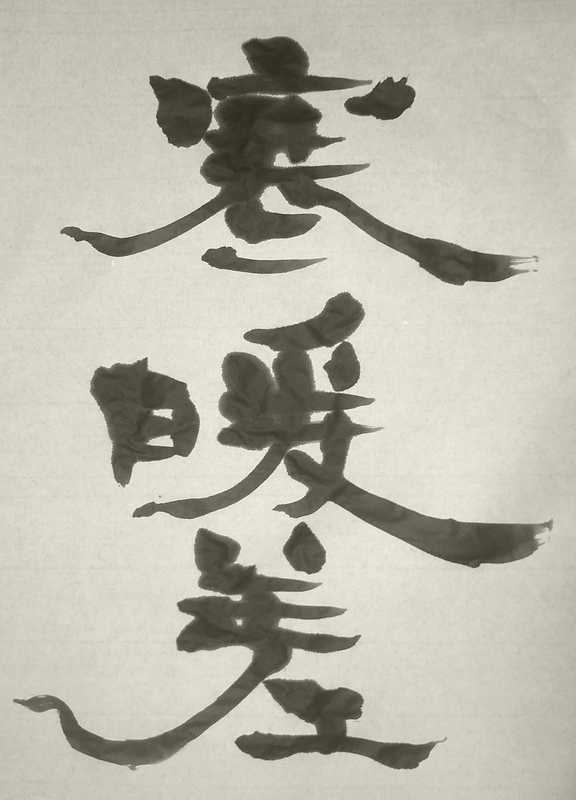 寒
暖
差